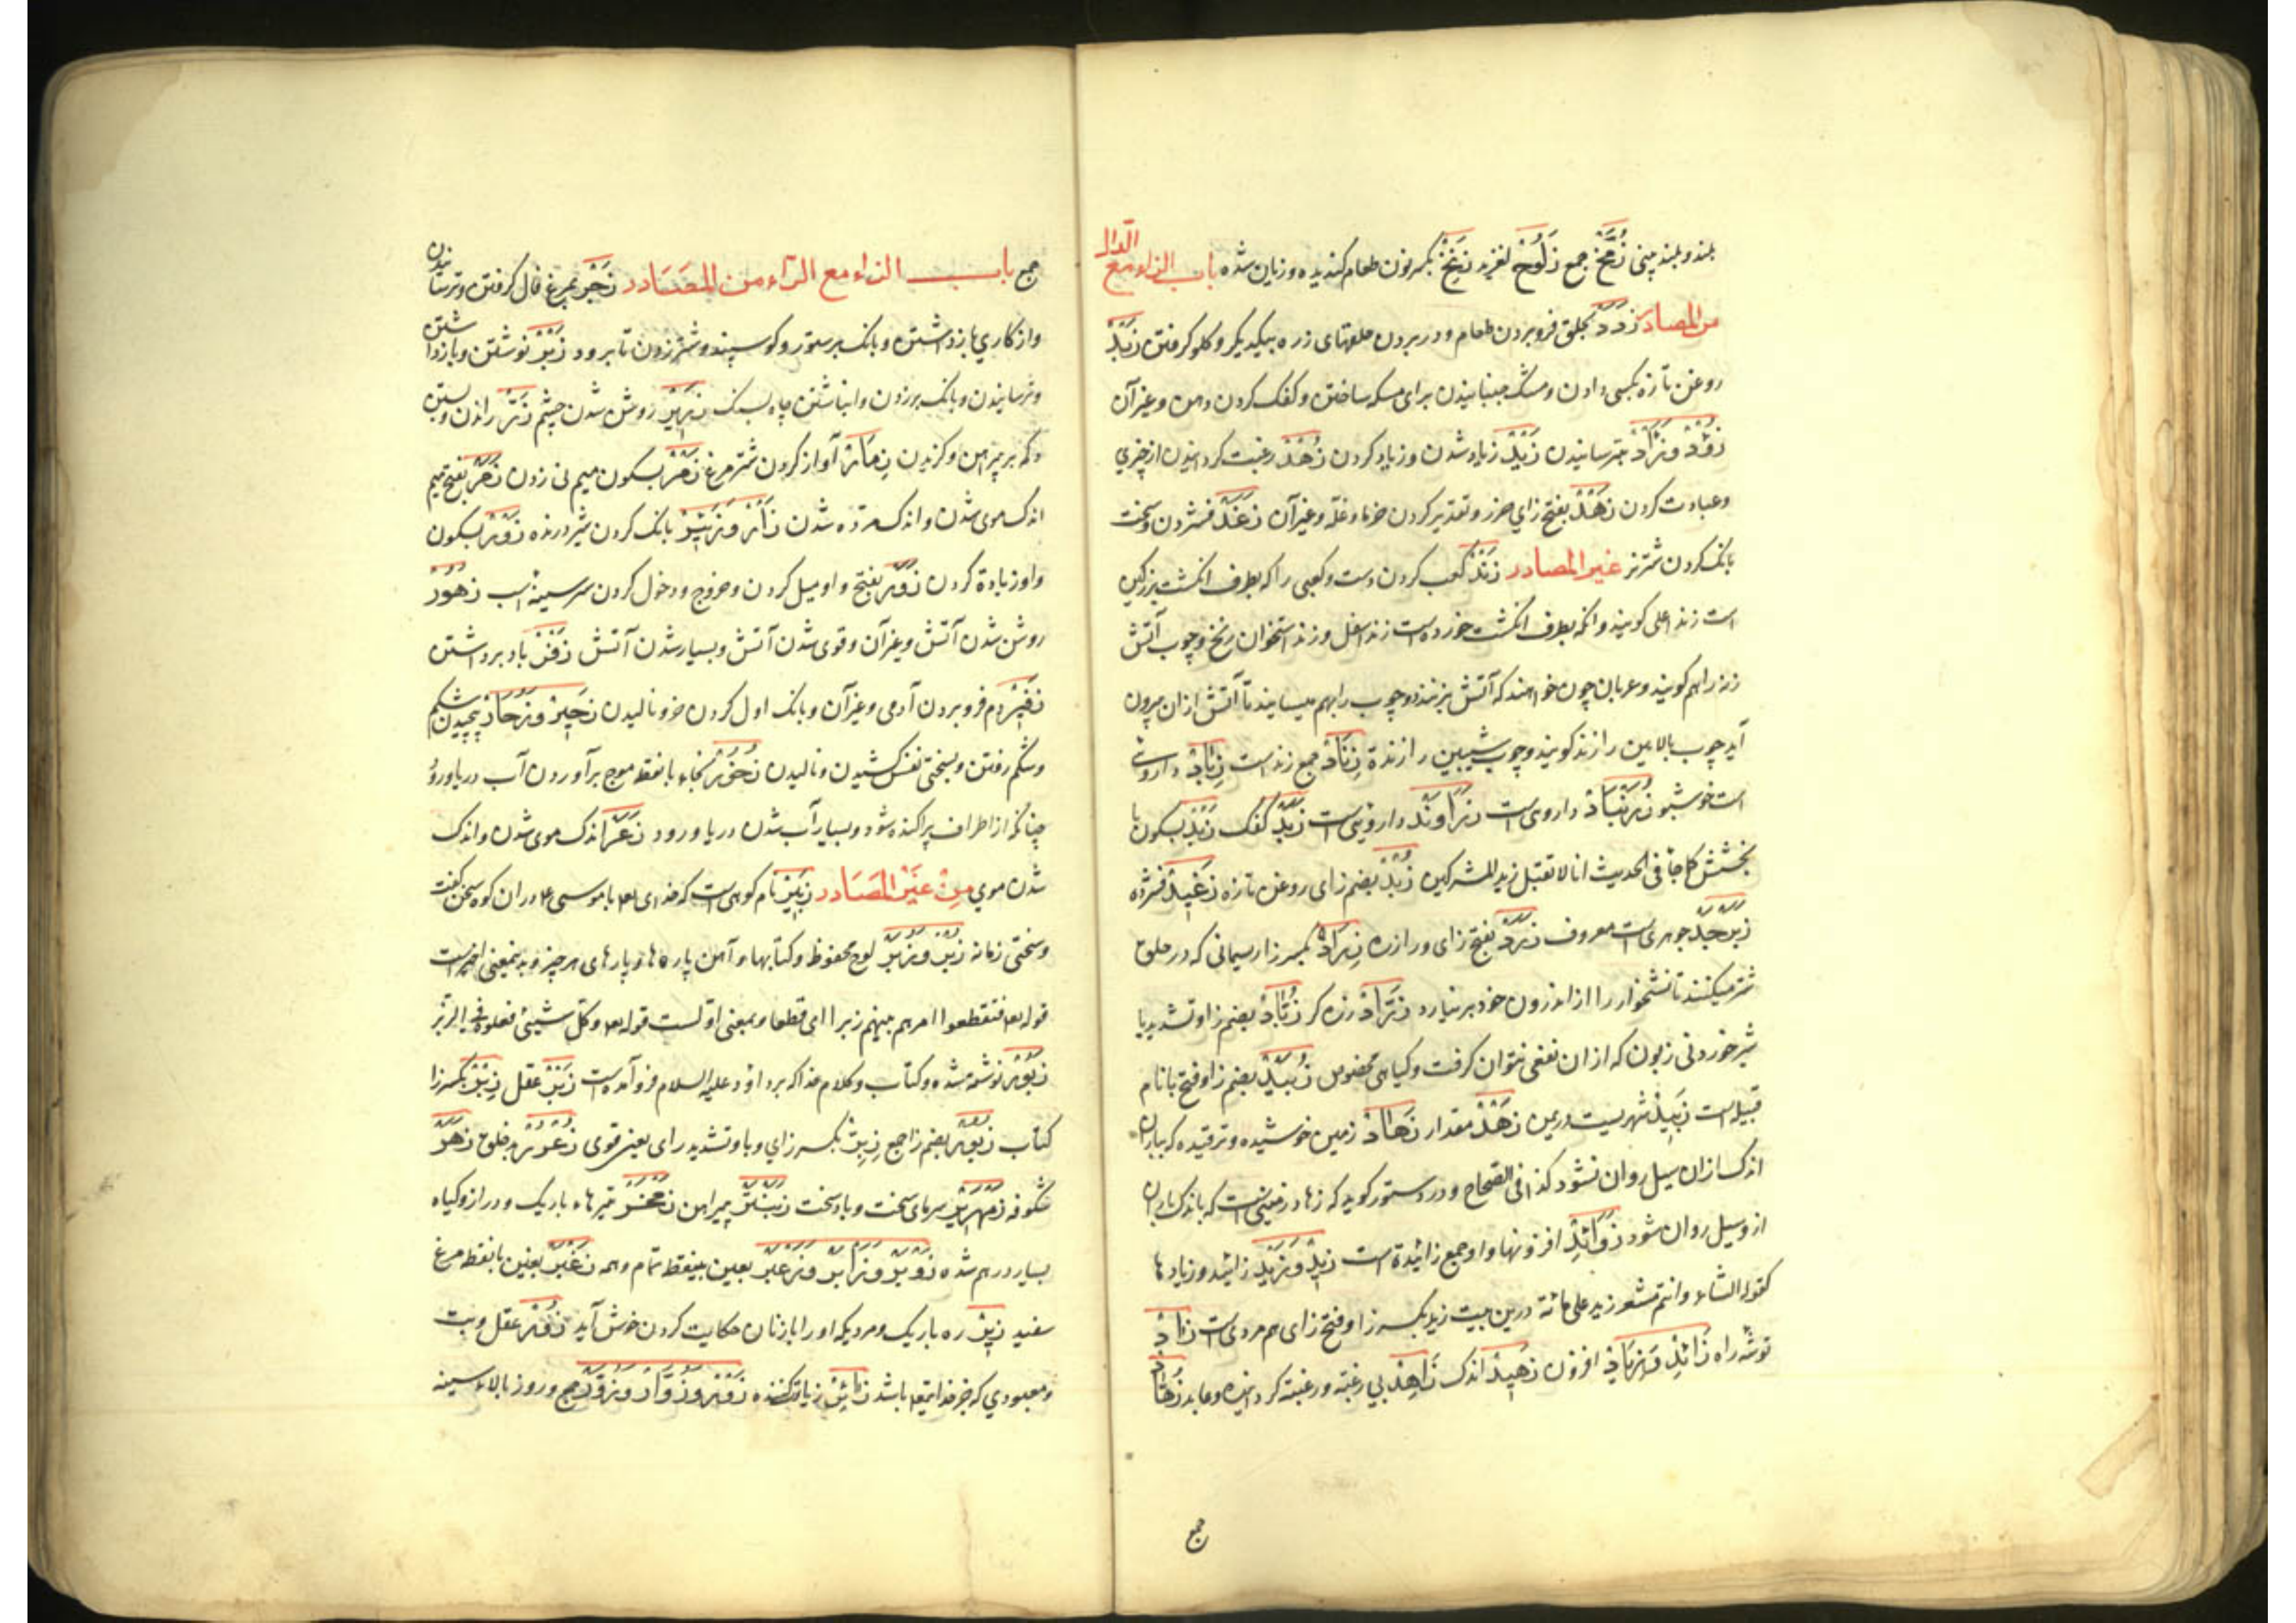 بلند و بلند بینی زُمَّخ جمع زَلُوخ لغزید زَنِخ بکسر نون طعام کندیده و زیان شده باب الزاء مع الدال
من المصادر زَرَد بحلق فرو بردن طعام و در بردن حلقهای زره بیکدیکر و کلو کرفتن زَبْد
روغن تازه بکسی دادن و مشک جنبانیدن برای مسکه ساختن و کفک کردن دهن و غیر آن
ترسانیدن زَیْد زیاد شدن و زیاد کردن زُهْد رغبت کردانیدن از چیزی
و عبادت کردن زَهْد بفتح زای حرز و تقدیر کردن خرما و غله و غیر آن زَغْد فشردن و سخت
بانک کردن شتر نر غیر المصادر زَنْد کعب کردن دست و کعبی را که بطرف انکشت بزرکین
است زند اعلی کویند و آنکه بطرف انکشت خورد است زند اسفل و زند استخوان زنخ و چوب آتش
زنه را هم کویند و عربان چون خواهند که آتش بزنند دو چوب را بهم میسایند تا آتش از ان بیرون
آید چوب بالایین را زند کویند و چوب شیبین را زندة زِنَاد جمع زند است زِبَاد داروئی
است خوشبو زُرُنْبَاد داروی است زَرَاوَنْد داروئی است زَبَد کفک زَبْد بسکون با
بخشش کما جاء فی الحدیث انا لا نقبل زبد المشرکین زُبْد بضم زای روغن تازه زَغِید فشرده
زَبَرْجَد جوهری است معروف زَرَد بفتح زای و را زره زِرَاد بکسر زا ریسمانی که در حلق
شتر میکنند تا نشخوار را از اندرون خود بر نیارد زَرَّاد زره کر زُبَّاد بضم زا و تشدید با
شیر خوردنی زبون که از ان نفعی نتوان کرفت و کیاهی مخصوص زُبَیْد بضم زا و فتح با نام
قبیله است زَبِید شهریست در یمن زَهْد مقدار زَهَاد زمین خوشیده و ترقیده که بباران
اندک از ان سیل روان نشود کذا فی الصحاح و در دستور کوید که زهاد زمینیست که باندک باران
از و سیل روان شود زَوَائِد افزونها و او جمع زائدة است زَیْد و زِیَد زاید و زیادها
کقوله الشاعر و انتم معشر زید علی مائة درین بیت زید بکسر زا و فتح زای هم مروی است زَاد
توشه راه زَائِد افزون زَهِید اندک زَاهِد بی رغبته و رغبته کرداننده و عابد زُهَّاد
جمع
جمع باب الزاء مع الراء من المصادر زَجْر بمرغ فال کرفتن و ترسانیدن
و از کاری باز داشتن و بانک بر ستور و کوسپند و شتر زدن تا برود زَبْر نوشتن و باز داشتن
و ترسانیدن و بانک بر زدن و انباشتن چاه بسنک زَهِیر روشن شدن چشم زَرّ راندن و بستن
دکمه بر پیراهن و کزیدن زِمَار آواز کردن شتر مرغ زَمْر بسکون میم نی زدن زَمَر بفتح میم
اندک موی شدن و اندک مرده شدن زَأر و زَئِیر بانک کردن شیر درنده زَوْر بسکون
واو زیادة کردن زَوَر بفتح واو میل کردن و خروج و دخول کردن سر سینه اسب زُهُور
روشن شدن آتش و غیر آن و قوی شدن آتش و بسیار شدن آتش زَفْر بار برداشتن
زَفِیر دم فرو بردن آدمی و غیر آن و بانک اول کردن خر و نالیدن زَحِیر و زُحَار پیچیدن شکم
و شکم رفتن و بسختی نفس کشیدن و نالیدن زُخُور بخاء با نقطه موج بر آوردن آب دریا و رود
چنانکه از اطراف پراکنده شود و بسیار آب شدن دریا و رود زَعَر اندک موی شدن و اندک
شدن موی من غیر المصادر زَبِیر نام کوهی است که خدای تعالی با موسی ع م در ان کوه سخن کفت
و سختی زمانه زُبُر و زُبَر لوح محفوظ و کتابها و آهن پاره‌ها و پارهای هر چیز و بدینمعنی اخیر است
قوله تعالی فتقطعوا امرهم بینهم زبرا ای قطعا و بمعنی اولست قوله تعالی و کل شیئ فعلوه فی الزبر
زَبُور نوشته شده و کتاب و کلام خدا که بر داود علیه السلام فرو آمده است زَبْر عقل زِبْر بکسر زا
کتاب زُبُور بضم زا جمع زِبِرّ بکسر زای و با و تشدید رای یعنی قوی زُعْرُور بدخلق زَهْر
شکوفه زَمْهَرِیر سرمای سخت و باد سخت
بسیار درهم شده بعین بینقطه تمام و همه زَغْبَر بغین با نقطه مرغ
سفید زِیر ره باریک و مردیکه او را با زنان حکایت کردن خوش آید زُور عقل و بت
و معبودی که جز خدایتعالی باشد زَائِر زیارتکننده زَوْر و زُوَّار و زُوَّر جمع و روز بالاء سینه